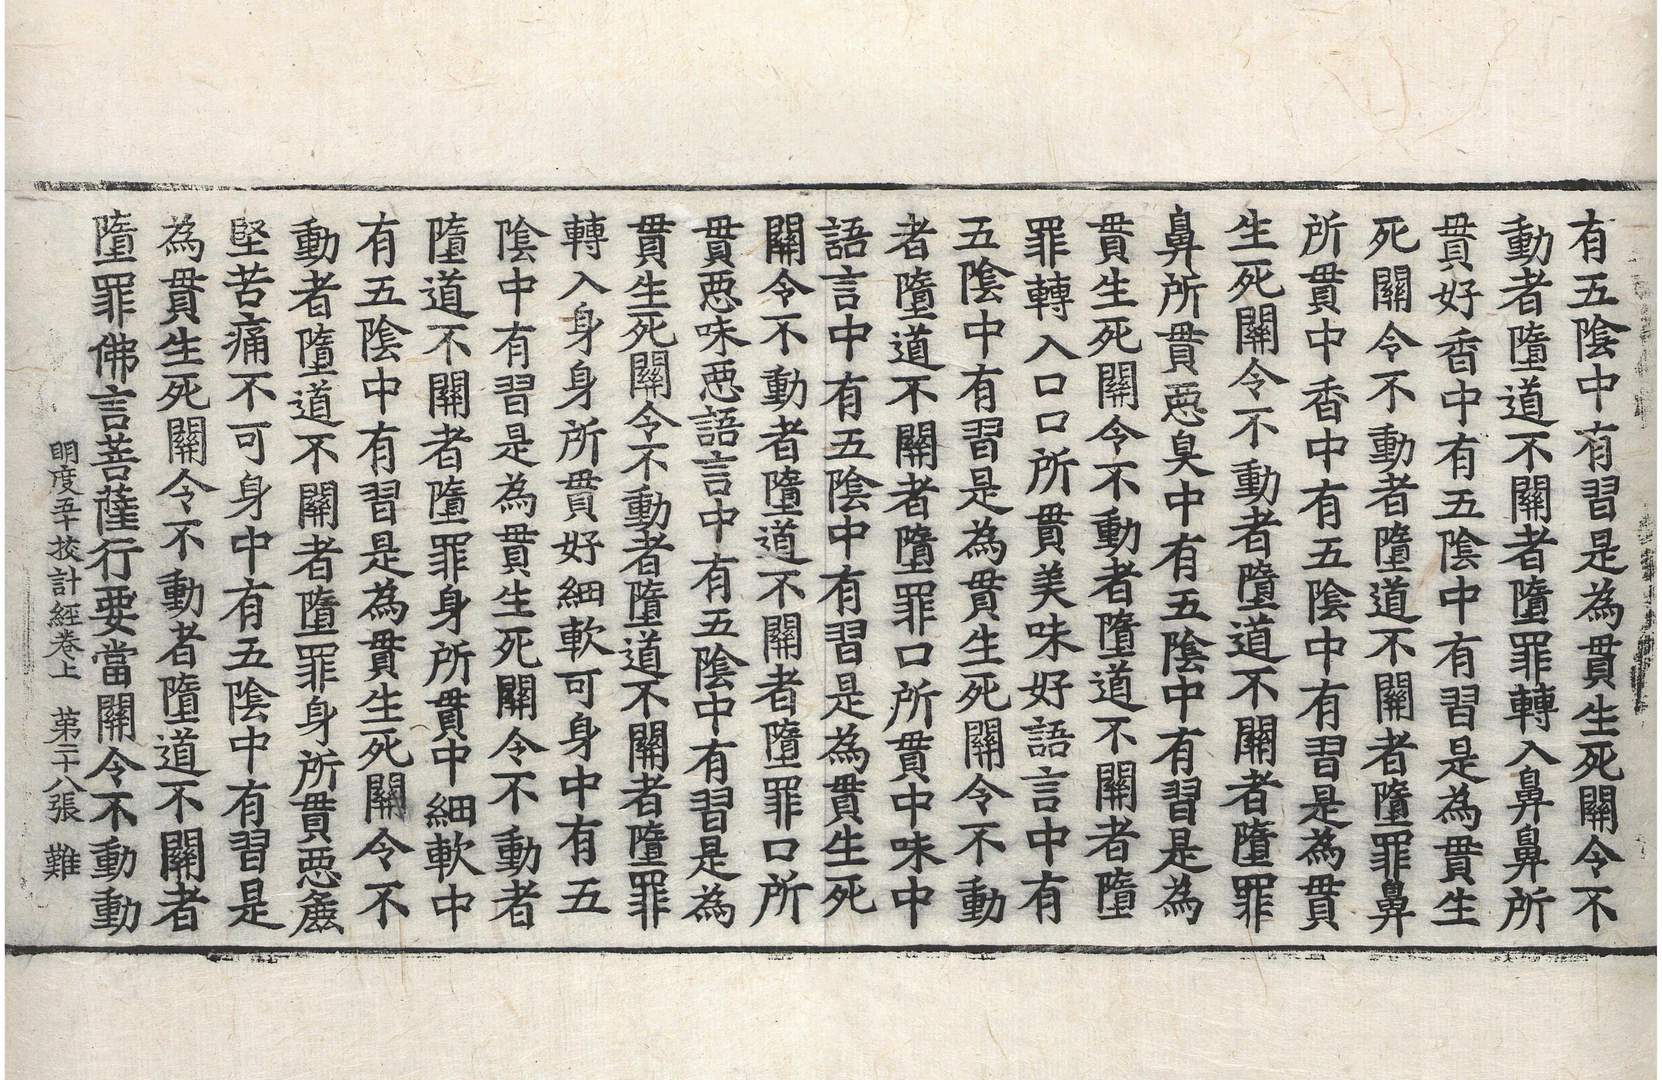 有五陰中有習是為貫生死關令不
動者墮道不關者墮罪轉入鼻鼻所
貫好香中有五陰中有習是為貫生
死關令不動者墮道不關者墮罪鼻
所貫中香中有五陰中有習是為貫
生死關令不動者墮道不關者墮罪
鼻所貫惡臭中有五陰中有習是為
貫生死關令不動者墮道不關者墮
罪轉入口口所貫美味好語言中有
五陰中有習是為貫生死關令不動
者墮道不關者墮罪口所貫中味中
語言中有五陰中有習是為貫生死
關令不動者墮道不關者墮罪口所
貫惡味惡語言中有五陰中有習是為
貫生死關令不動者墮道不關者墮罪
轉入身身所貫好細軟可身中有五
陰中有習是為貫生死關令不動者
墮道不關者墮罪身所貫中細軟中
有五陰中有習是為貫生死關令不
動者墮道不關者墮罪身所貫惡麁
堅苦痛不可身中有五陰中有習是
為貫生死關令不動者墮道不關者
墮罪佛言菩薩行要當關令不動動
明度五十挍計經卷上 第二十八張 難